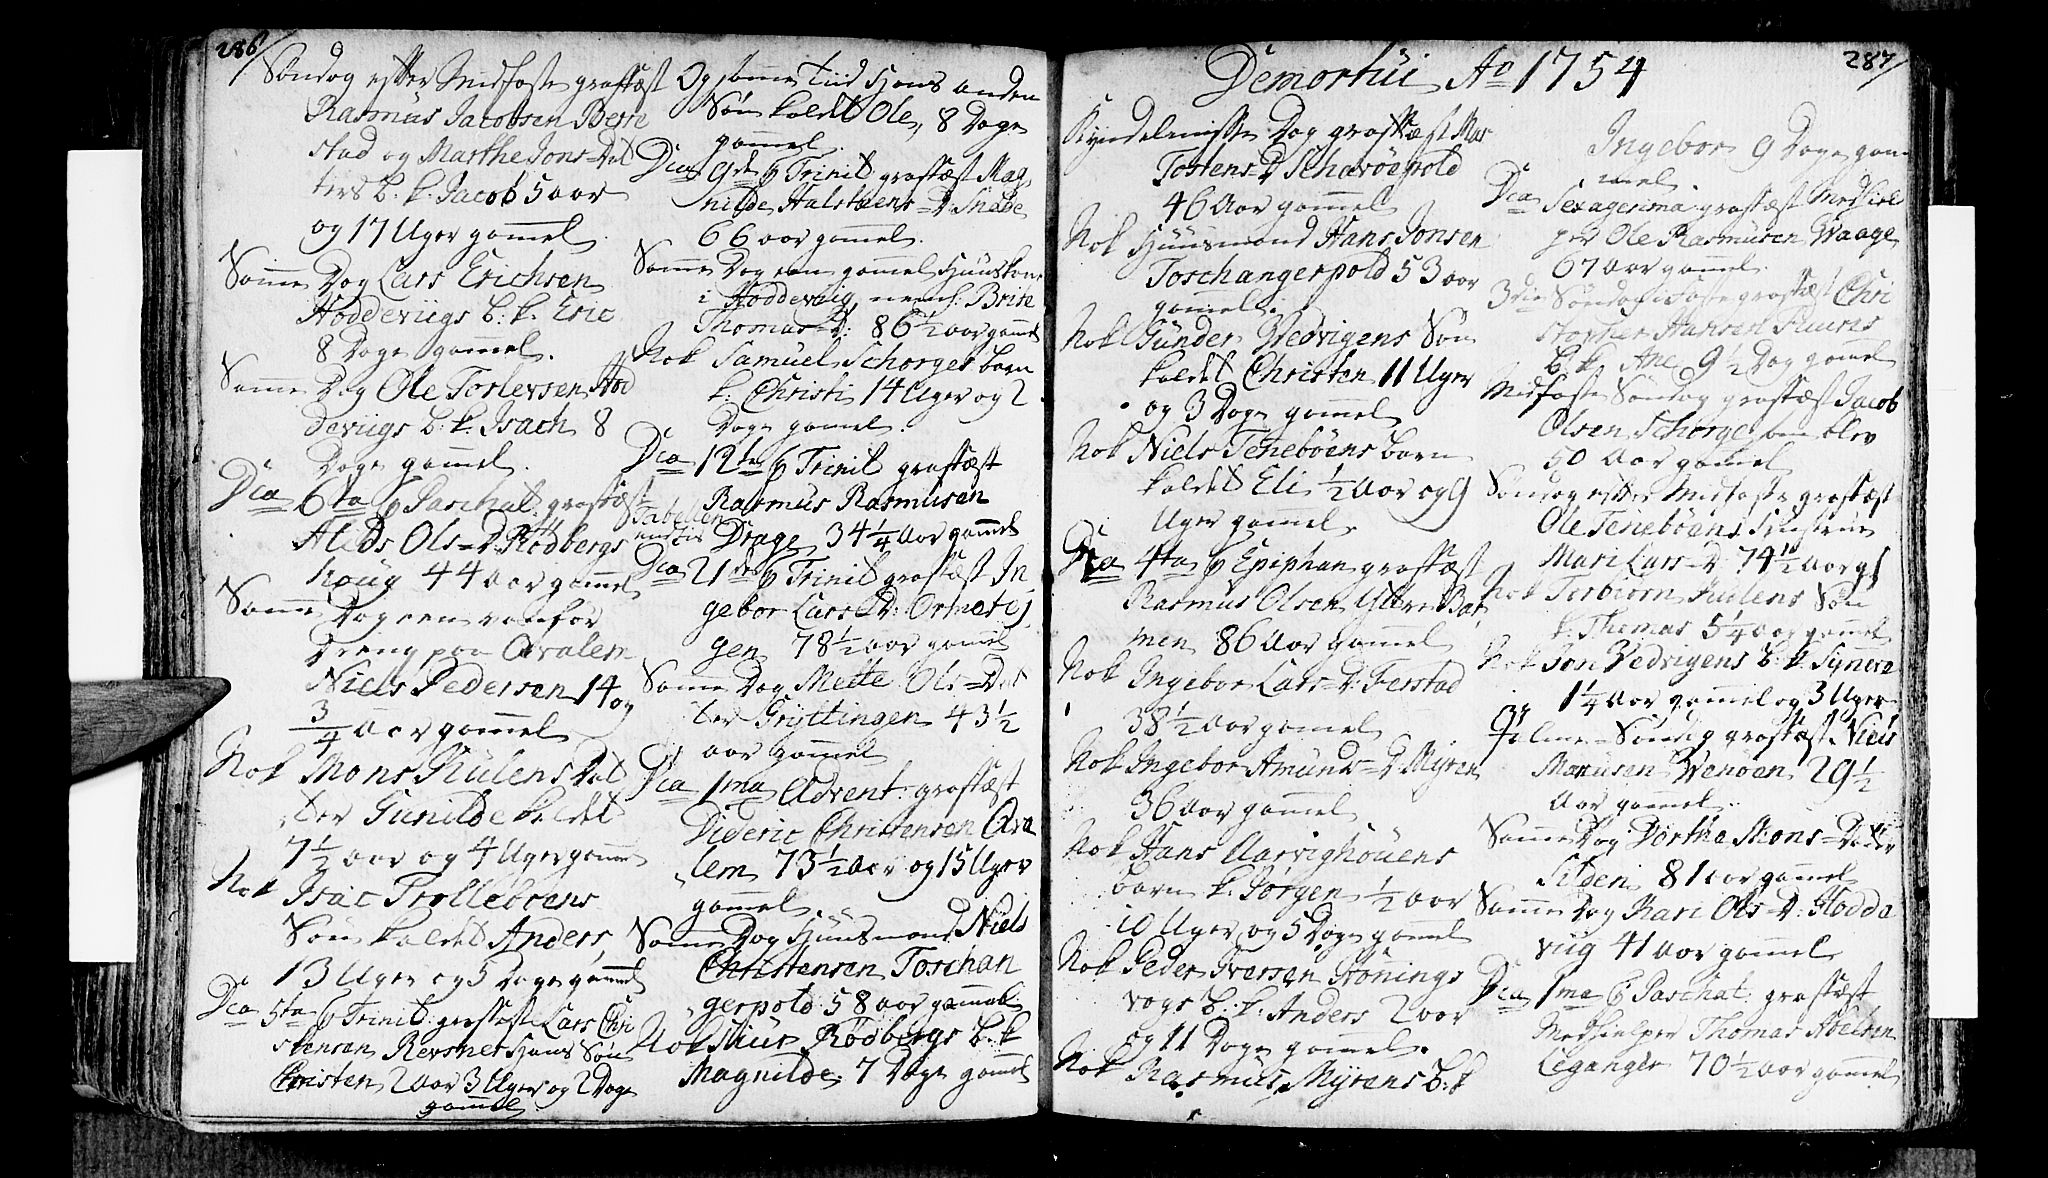 286
Søndag efter Midfaste grafsæst
Rasmus Jacobsen Berre
stad og Marthe Jons-Dat
ters b. k. Jacob 5 aar
og 17 Uger gamel.
Samme Dag Lars Erichsen
Hoddeviigs b. k. Eric
8 Dage gamel.
Samme Dag Ole Torlevsen Hod
deviigs b. k. Isach 8
Dage gamel.
Dca 6ta p Paschat. grafsæst
Ols-D. Rødbergs
houg 44 aar gamel
Samme Dag een vanfør
Dreng paa Arvalem
Niels Pedersen 14 og
3/4 Aar gamel
Nok Mons Dat
ter Gunilde kaldet
7 1/2 aar og 4 Uger gamel
Nok Isac Trollebøens
Søn kaldet Anders,
13 Uger og 5 Dage gamel
Dca 5ta p Trinit. grafsæst Lars Chri
stensen Revsnes Hans Søn
Christen 2 aar 3 Uger og 2 Dage
gamel
Og samme Tiid Hans anden
Søn kaldet Ole, 8 Dage
gamel.
Dca 9de p Trinit grafsæst Mag
nilde Halstæens-D.
66 aar gamel.
Samme Dag een gamel Huuskone
i Hoddeviig, neml: Brite
Thomas-D: 86 1/2 aar gamel
Nok Samuel Schorges barn
k. Christi 14 Uger og 2
Dage gamel.
Dca 12te p Trinit grafsæst
Rasmus Rasmusen
Drage 34 1/4 Aar gamel
Dca 21de p Trinit grafsæst In
gebor Lars-D: Ormetej
gen 78 1/2 aar gamel
Samme Dag Mette Ols-Dat
ter Gryttingen 43 1/2
aar gamel
Dca 1ma Advent: grafsæst
Dideric Christensen Arva
lem 73 1/2 Aar og 15 Uger
gamel
Samme Dag Huusmand Niels
Christensen Toschan
gerpold 58 aar gamel
Nok Siur Rødbergs b. k
Magnilde 7 Dage gamel
287
Demortui Ao 1754
Kyndelmisse Dag grafsæst
Tostens-D
46 Aar gamel
Nok Huusmand Hans Jonsen
Toschangerpold 53 aar
gamel.
Nok Gunder Vedvigens Søn
kaldet Christen 11 Uger
og 3 Dage gamel
Nok Niels Tenebøens barn
kaldet Eli 1/2 Aar og 9
Uger gamel.
Dca 4ta p Epiphan grafsæst
Rasmus Olsen Yttre Bar
men 86 Aar gamel
Nok Ingebor Lars-D: Ferstad
38 1/2 aar gamel
Nok Ingebor Amunds-D Myren
36 aar gamel
Nok Hans Aarvighouens
barn k. Jørgen 1/2 aar
10 Uger og 5 Dage gamel
Nok Peder Iversen Hønings
vogs b. k. Anders 2 aar
og 11 Dage gamel.
Nok Rasmus Myrens b. k
Ingebor 9 Dage gam
mel.
Dca Sexagesima grafsæst Medhiel
per Ole Rasmusen Waage
67 Aar gamel.
3die Søndag i Faste grafsæst Chri
stopher Hansen
b. k. Ane 9 1/2 Dag gamel
Midfaste Søndag grafsæst Jacob
Olsen Schorge som blev
50 Aar gamel
Søndag efter Midfaste grafsæst
Ole Tenebøens
Mari Lars-D 74 1/2 aar gl
Nok Torbiørn Søn
k. Thomas 5 1/4 aar gamel
Nok Jon Vedvigens b. k. Synera
1 1/4 Aar gamel og 3 Uger
Palme-Søndag grafsæst Niels
29 1/2
Aar gamel.
Samme Dag Dorthe Mons-Datter
Silden 81 aar gamel
Samme Dag Kari Ols-D: Hodda
viig 41 Aar gamel
Dca 1ma p Paschat: grafsæst
Medhielper Thomas Abelsen
Leganger 70 1/2 aar gamel